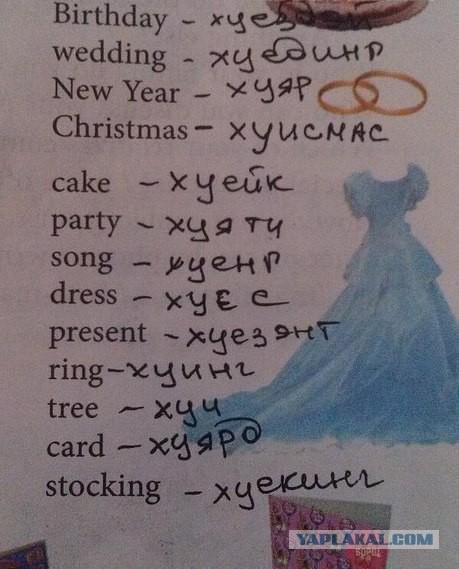 Birthday - хуездей
wedding - хуединг
New Year - хуяр
Christmas - хуисмас
cake - хуейк
party - хуяти
song - хуенг
dress - хуес
present - хуезянт
ring - хуинг
tree - хуи
card - хуярд
stocking - хуекинг
YAPLAKAL.COM